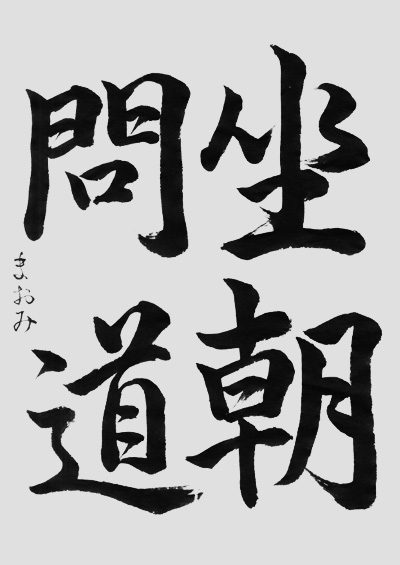 坐朝
問道
まおみ